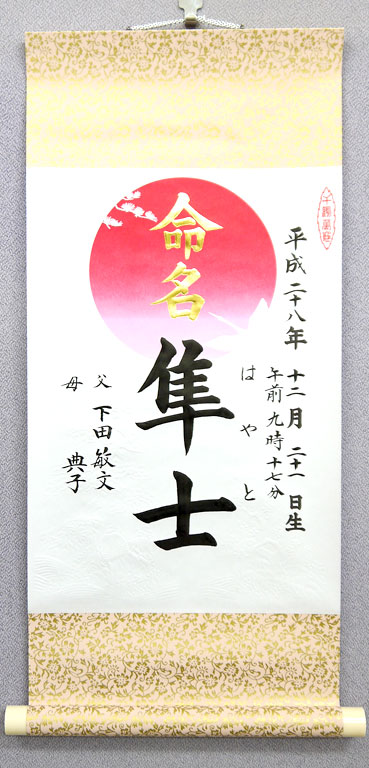 平成二十八年 十二月 二十一日生
午前 九時 十七分
はやと
命名
隼士
父 下田敏文
母 典子